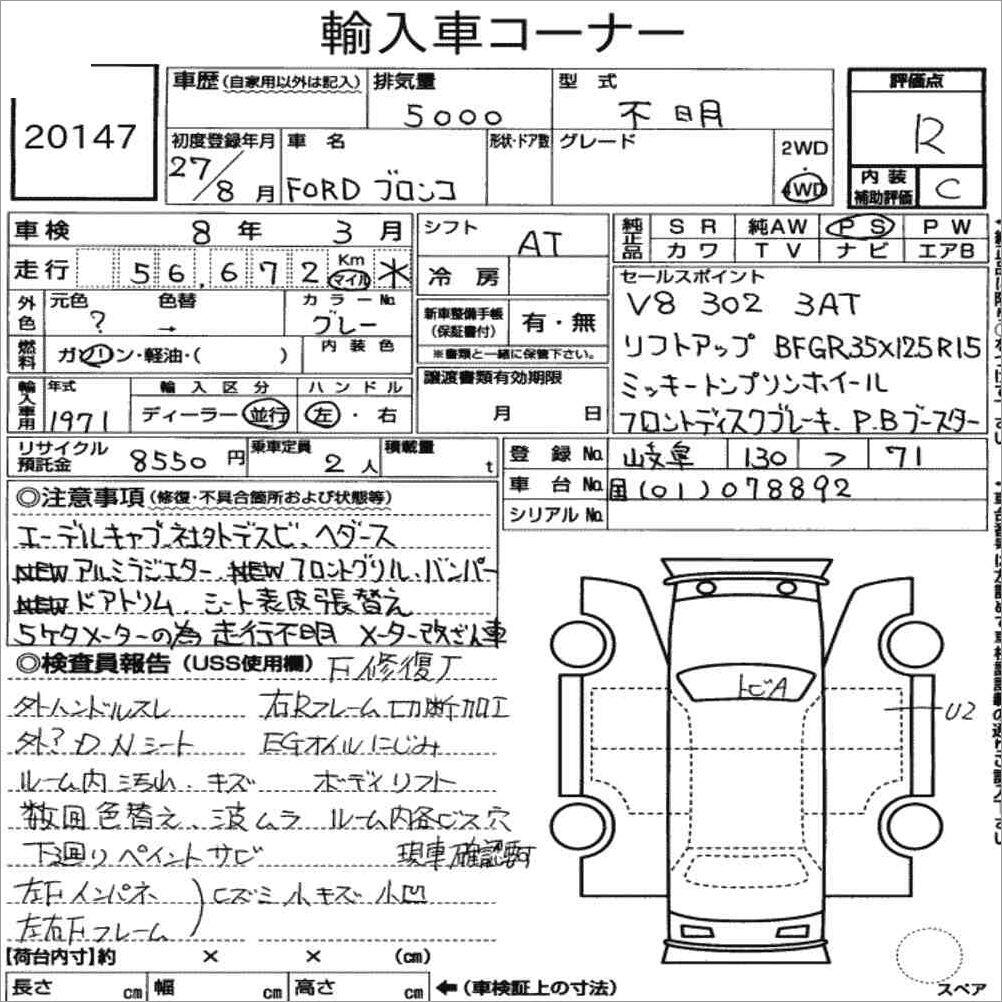 輸入車コーナー
20147
車歴(自家用以外は記入) 排気量 5000 型式 不明 評価点 R
初度登録年月 27/8月 車名 FORD ブロンコ 形状・ドア数 グレード 2WD・4WD 内装補助評価 C
車検 8年 3月 シフト AT 純正品 SR 純AW PS PW
走行 56,672 Km マイル 冷房 カワ TV ナビ エアB
外色 元色 ? 色替 → カラーNo. グレー 新車整備手帳(保証書付) 有・無 セールスポイント
V8 302 3AT
燃料 ガソリン・軽油・( ) 内装色 ※書類と一緒に保管下さい。 リフトアップ BFGR35×125R15
譲渡書類有効期限 月 日
ミッキートンプソンホイール
輸入車用 年式 1971 輸入区分 ディーラー・並行 ハンドル 左・右 フロントディスクブレーキ、P.Bブースター
リサイクル預託金 8550円 乗車定員 2人 積載量 t 登録No. 岐阜 130 つ 71
車台No. 国(01)078892
シリアルNo.
◎注意事項(修復・不具合箇所および状態等)
エーデルキャブ、社外デスビ、ヘダース
NEW アルミラジエター、NEW フロントグリル、バンパー
NEW ドアトリム、シート表皮張替え
5ケタメーターの為 走行不明 メーター改ざん車
◎検査員報告(USS使用欄)
外ハンドルスレ 右Rフレーム切断加工
外? D.Nシート EGオイルにじみ
ルーム内 汚れ、キズ ボディリフト
数回色替え、波ムラ ルーム内各ビス穴
下廻り ペイント サビ 現車確認要
左Fインパネ
左右Fフレーム
小キズ 小凹
トビA
U2
【荷台内寸】約 × × (cm)
長さ cm 幅 cm 高さ cm ←(車検証上の寸法)
スペア